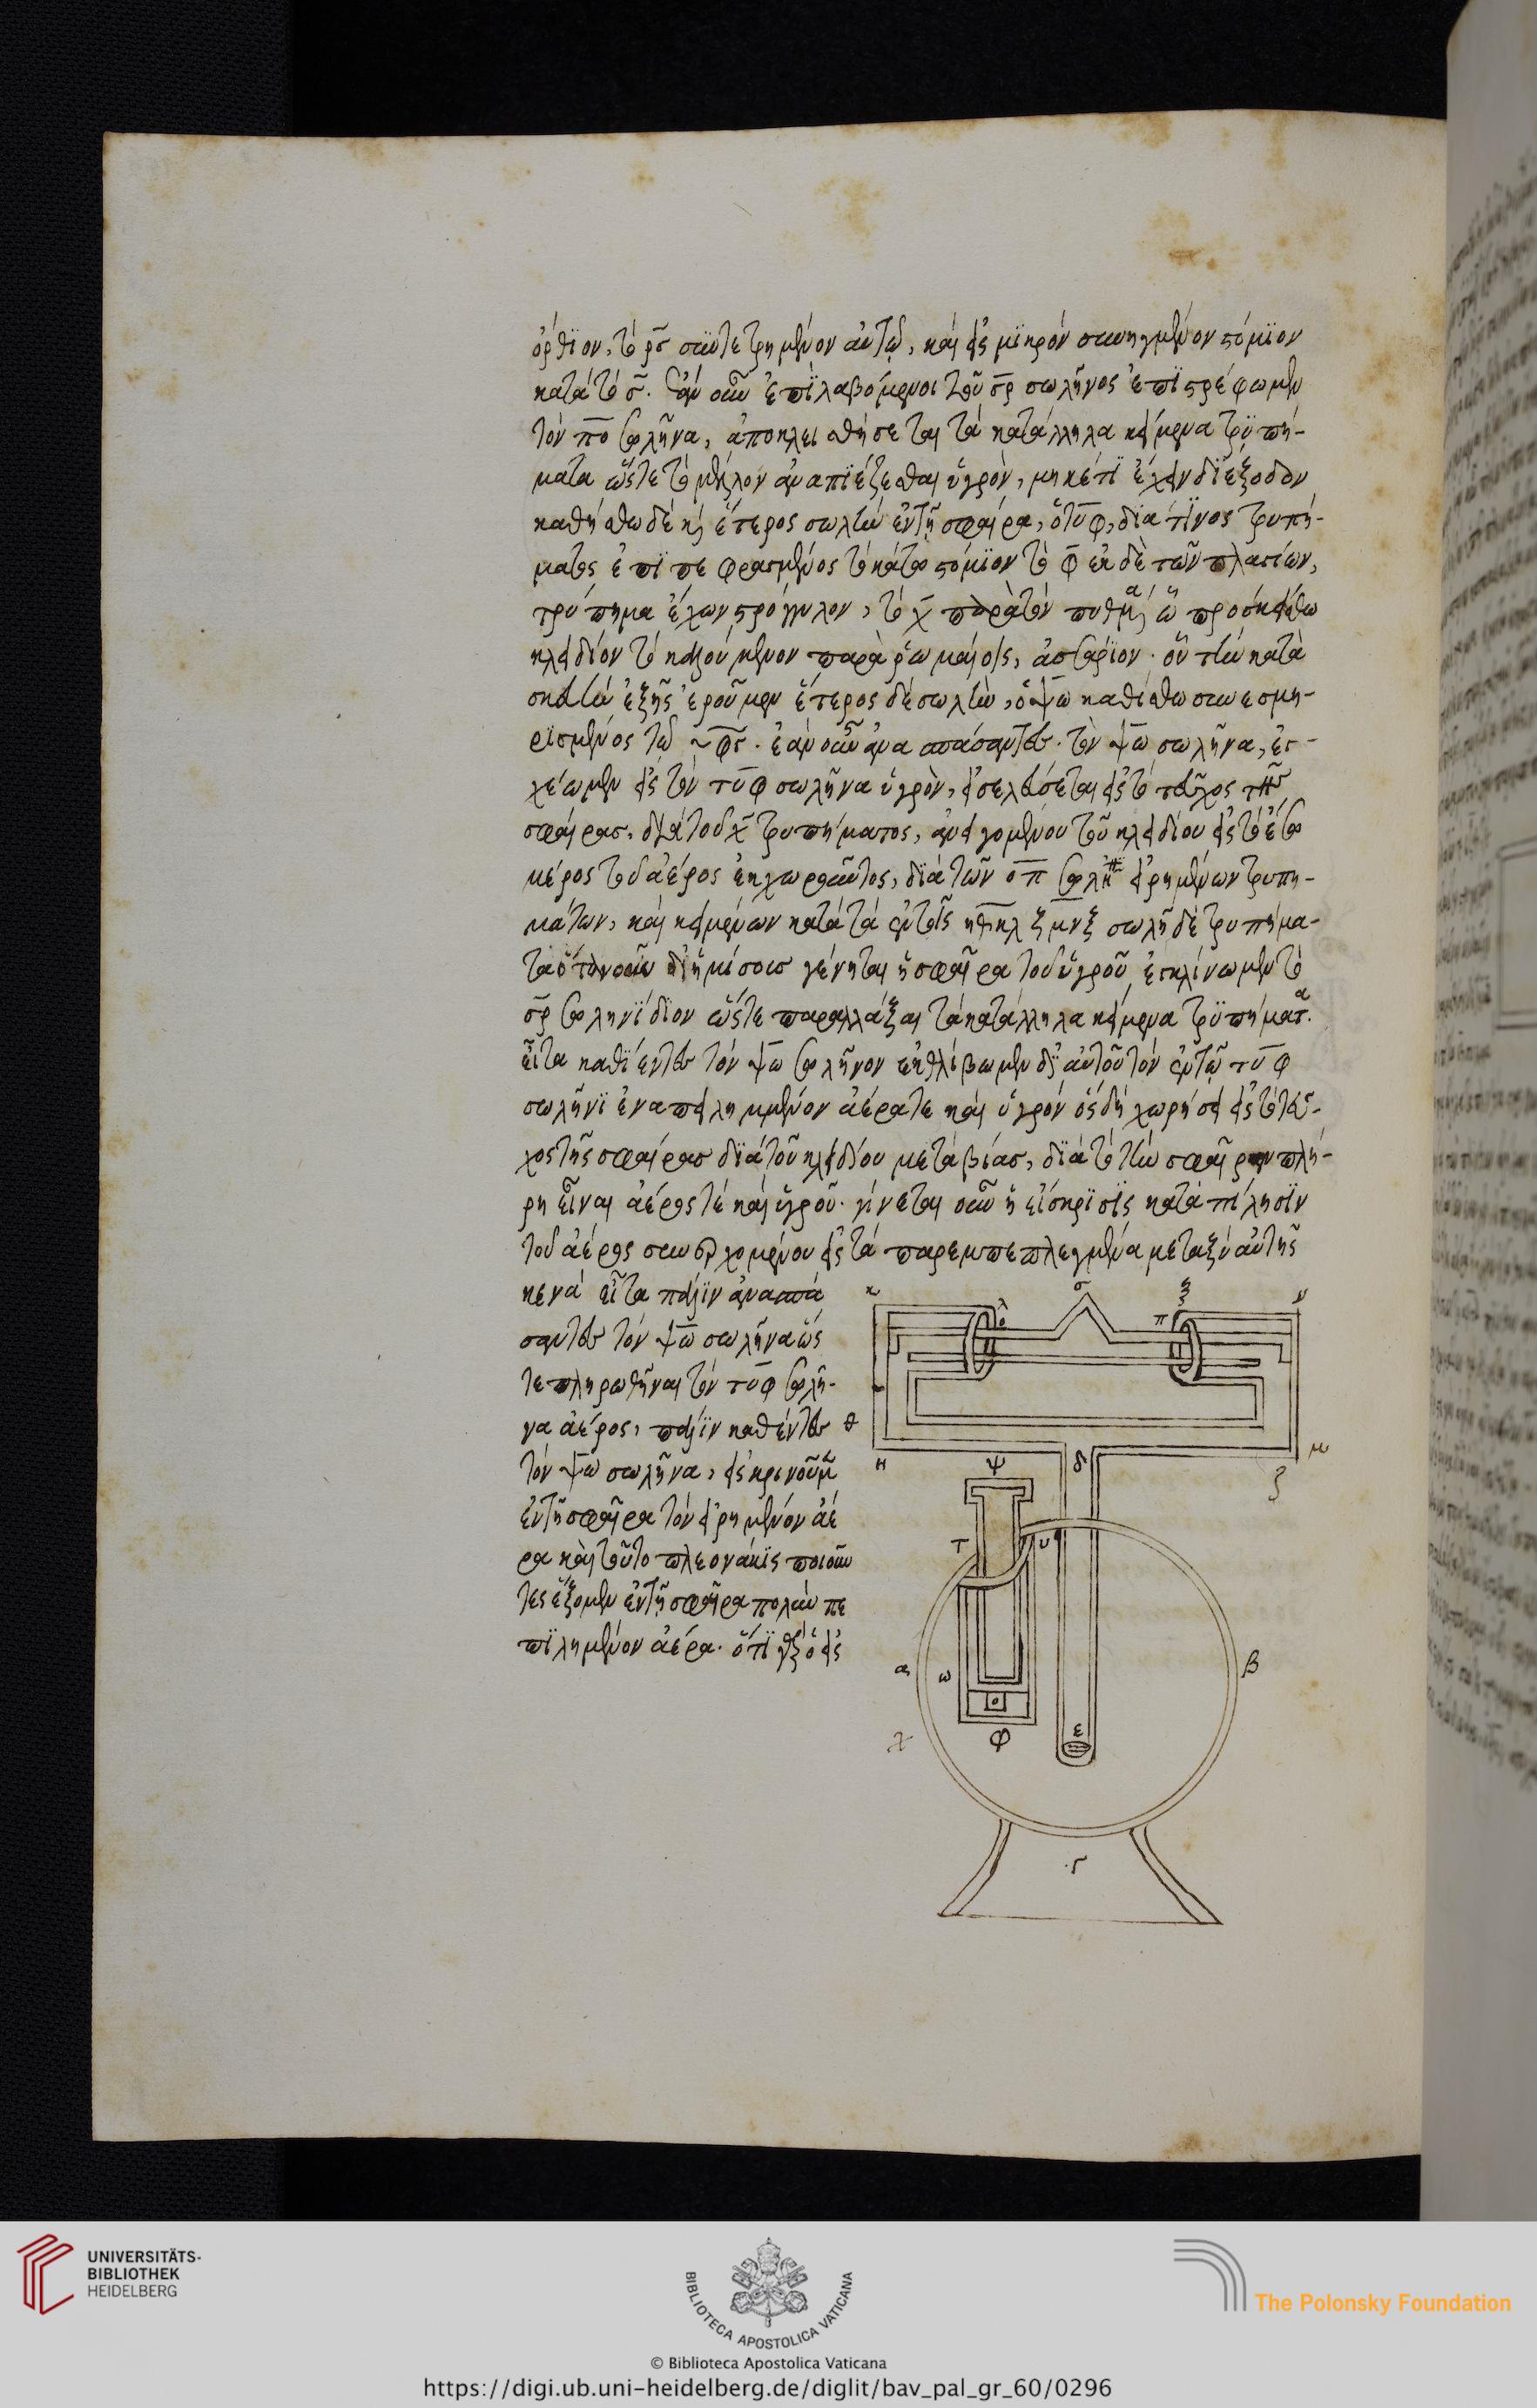 ὄρθϊον, τὸ ρ̅σ̅ συντετρημένον αὐτῷ, καὶ εἰς μϊκρόν συνηγμένον στόμϊον
κατὰ τὸ σ̅. ἐὰν οὖν ἐπϊλαβόμενοι τοῦ σ̅ρ̅ σωλῆνος ἐπϊστρέφωμεν
τὸν π̅ο̅ σωλῆνα, ἀποκλεισθήσεται τὰ κατάλληλα κείμενα τρϋπή-
ματα ὥστε τὸ μέλλον ἀναπϊέζεσθαι ὑγρὸν, μηκέτϊ ἔχειν δϊέξοδον
καθείσθω δὲ καὶ ἕτερος σωλὴν ἐν τῇ σφαίρα, ὁ τ̅υ̅φ̅, δϊά τϊνος τρυπή-
ματος ἐπϊπεφρασμένος τὸ κάτω στόμϊον τὸ φ̅ ἐκ δὲ τῶν πλασίων,
τρύπημα ἔχων στρόγγυλον, τὸ χ̅ παρὰ τὸν πυθμ ᾧ προσκείσθω
κλειδίον τὸ καλούμενον παρὰ ῥωμαίοις, ἀσσάρϊον. οὗ τὴν κατὰ
σκευὴν ἑξῆς ἐροῦμεν ἕτερος δὲ σωλὴν, ὁ ψ̅ω̅ καθείσθω συνεσμη-
ρϊσμένος τῷ τ̅υ̅φ̅. ἐὰν οὖν ἀνασπάσαντες τὸν ψ̅ω̅ σωλῆνα, ἐγ-
χέωμεν εἰς τὸν τ̅υ̅φ̅ σωλῆνα ὑγρὸν, εἰσελεύσεται εἰς τὸ τεῦχος τῆς
σφαίρας, διὰ τοῦ χ̅ τρυπήματος, ἀνοιγομένου τοῦ κλειδίου εἰς τὸ ἔσω
μέρος τοῦ ἀέρος ἐκχωροῦντος, διὰ τῶν ο̅π̅ εἰρημένων τρυπη-
μάτων, καὶ κειμένων κατὰ τὰ ἐν τοῖς η̅θ̅κ̅λ̅ ζ̅μ̅ν̅ξ̅ σωλῆ δὲ τρυπήμα-
τα ὅταν οὖν δϊ ἡμίσους γένηται ἡ σφαῖρα τοῦ ὑγροῦ ἐγκλίνωμεν τὸ
σ̅ρ̅ σωληνΐδϊον ὥστε παραλλάξαι τὰ κατάλληλα κείμενα τρϋπήματα.
εἶτα καθϊέντες τὸν ψ̅ω̅ σωλῆνον ἐκθλίβωμεν δϊ αὐτοῦ τὸν ἐν τῷ τ̅υ̅φ̅
σωλῆνϊ ἐναπειλημμένον ἀέρα τε καὶ ὑγρόν ὃς δὴ χωρήσει εἰς τὸ τεῦ-
χος τῆς σφαίρας διὰ τοῦ κλειδίου μετὰ βίας, διὰ τὸ τὴν σφαῖραν πλή-
ρη εἶναι ἀέρος τὲ καὶ ὑγροῦ. γίνεται οὖν ἡ εἴσκρϊσϊς κατὰ πίλησϊν
τοῦ ἀέρος συνερχομένου εἰς τὰ παρεμπεπλεγμένα μεταξὺ αὐτῆς
κενά εἶτα πάλϊν ἀνασπά
σαντες τὸν ψ̅ω̅ σωλῆνα ὥς
τε πληρωθῆναι τὸν τ̅υ̅φ̅ σωλῆ-
να ἀέρος, πάλϊν καθέντες
τὸν ψ̅ω̅ σωλῆνα, εἰσκρινοῦμεν
ἐν τῇ σφαῖρα τὸν εἰρημένον ἀέ
ρα καὶ τοῦτο πλεονάκϊς ποιοῦν
τες ἕξομεν ἐν τῇ σφαῖρα πολὺν πε
πϊλημένον ἀέρα. ὅτϊ
κ λ ο σ π ξ ν
θ
η ψ δ ζ μ
τ υ
α ω β
χ φ ε
γ
UNIVERSITÄTS-
BIBLIOTHEK
HEIDELBERG
BIBLIOTECA APOSTOLICA VATICANA
The Polonsky Foundation
© Biblioteca Apostolica Vaticana
https://digi.ub.uni-heidelberg.de/diglit/bav_pal_gr_60/0296